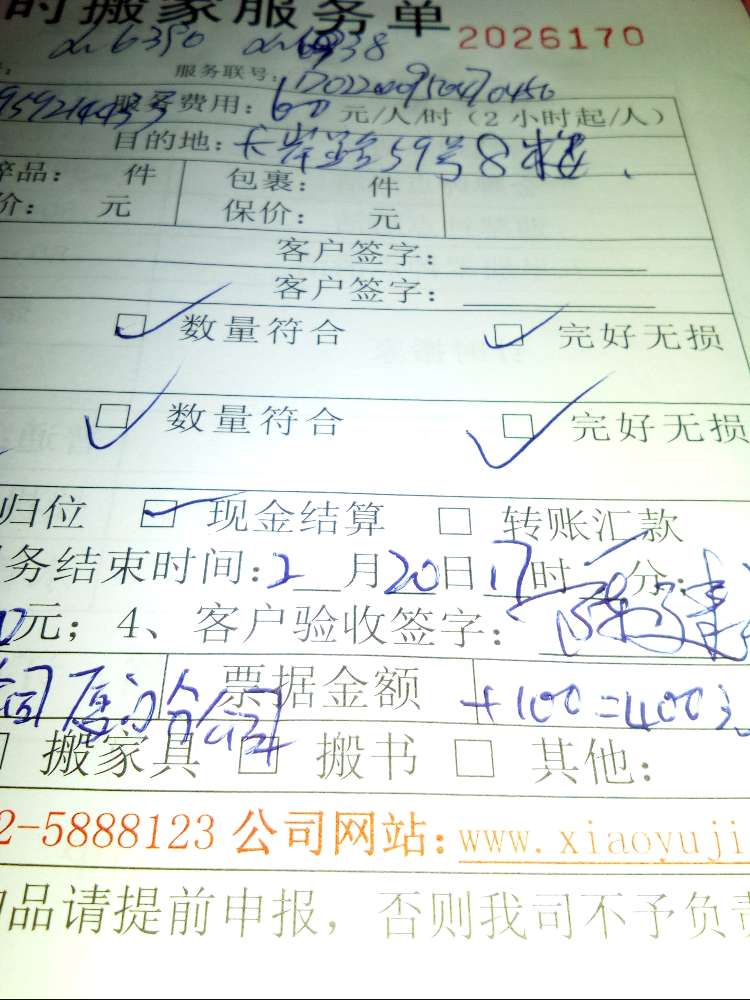 时搬家服务单 2026170
服务联号:
服务费用: 60 元/人/时(2小时起/人)
目的地: 长岸路59号8楼
品: 件 包裹: 件
价: 元 保价: 元
客户签字:
客户签字:
数量符合 完好无损
数量符合 完好无损
归位 现金结算 转账汇款
务结束时间: 2月20日17时 分;
元; 4、客户验收签字:
厦门分公司 票据金额 +100=400元
搬家具 搬书 其他:
2-5888123 公司网站: www.xiaoyuji
品请提前申报, 否则我司不予负责